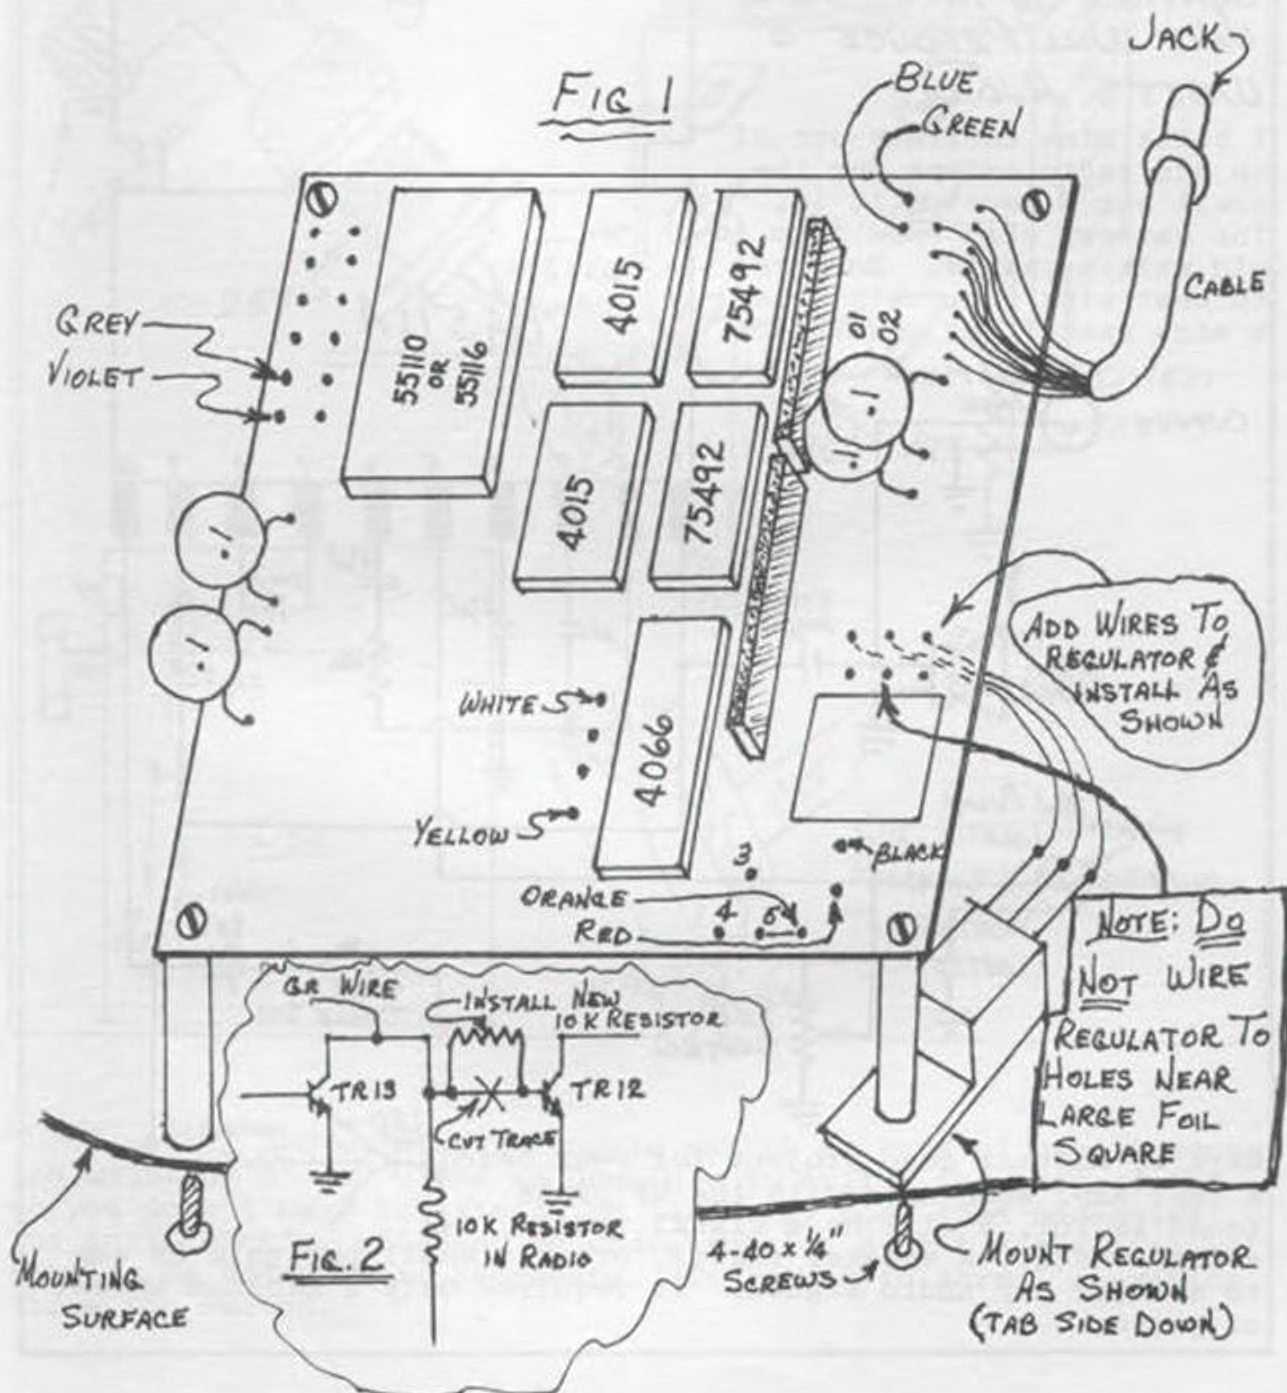 JACK
FIG 1
BLUE
GREEN
CABLE
GREY
VIOLET
55110
OR
55116
4015
75492
01
02
.1
.1
4015
75492
.1
.1
ADD WIRES TO
REGULATOR &
INSTALL AS
SHOWN
WHITE
4066
YELLOW
BLACK
3
ORANGE
4
5
RED
NOTE: DO
NOT WIRE
REGULATOR TO
HOLES NEAR
LARGE FOIL
SQUARE
GR WIRE
INSTALL NEW
10K RESISTOR
TR13
TR12
CUT TRACE
10K RESISTOR
IN RADIO
FIG. 2
MOUNTING
SURFACE
4-40 x 1/4"
SCREWS
MOUNT REGULATOR
AS SHOWN
(TAB SIDE DOWN)